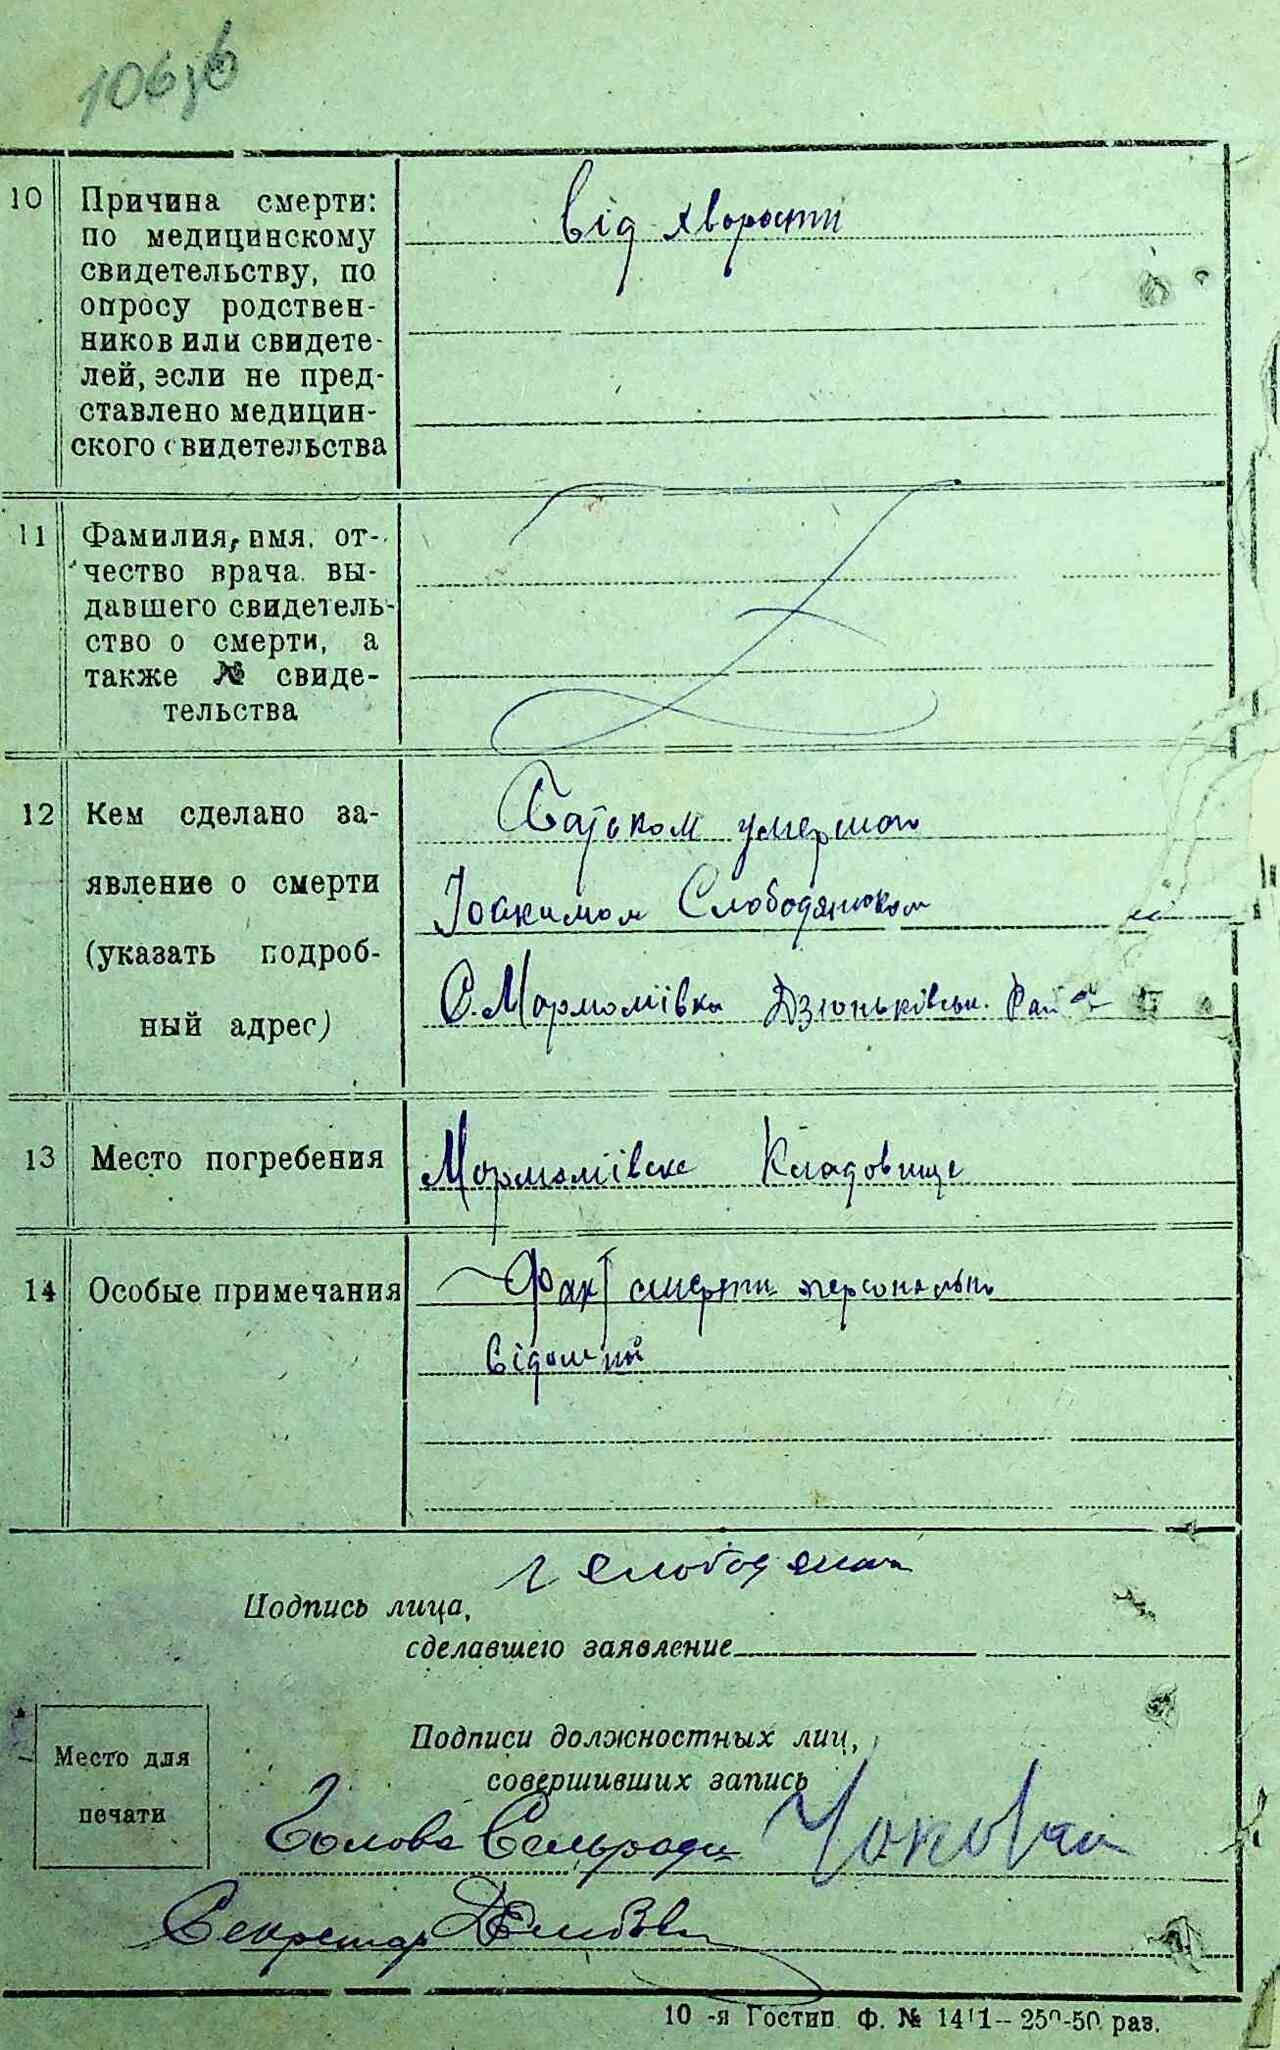 10 Причина смерти:
по медицинскому
свидетельству, по
опросу родствен-
ников или свидете-
лей, если не пред-
ставлено медицин-
ского свидетельства
Від хворости
11 Фамилия, имя, от-
чество врача, вы-
давшего свидетель-
ство о смерти, а
также № свиде-
тельства
12 Кем сделано за-
явление о смерти
(указать подроб-
ный адрес)
Батьком умершого
Іоакимом Слободянюком
С. Мормоліївка Дзюньківськ. Рай
13 Место погребения
Мормоліївске Кладовище
14 Особые примечания
Факт смерти персонально
відомий
Подпись лица,
сделавшего заявление
Место для
печати
Подписи должностных лиц,
совершивших запись
Голова Сельради
Секретар
10-я Гостип Ф. № 1411—250-50 раз.